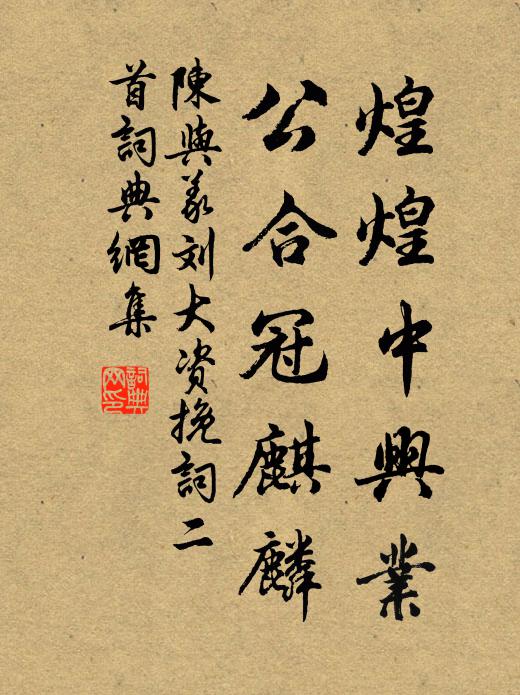 煌煌中興業
公合冠麒麟
陳與義刘大资挽詞二
首詞典網集
詞典网印